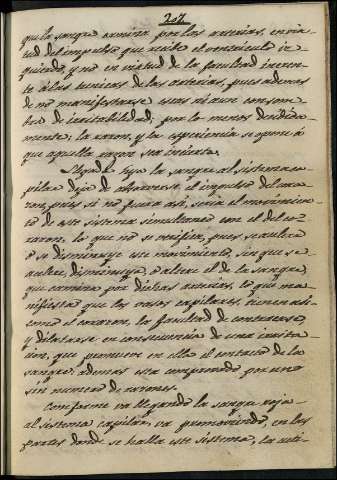 207
que la sangre camina por las arterias, en vir-
tud del impulso que recibe el ventriculo iz-
quierdo, y no en virtud de la facultad inheren-
te á las tunicas de las arterias, pues ademas
de no manifestarse estas ni aun con som-
bra de irritabilidad, por lo menos decidida-
mente; la razon, y la esperiencia se opone á
que aquella razon sea incierta.
Llegada la sangre al sistema ca-
pilar deja de observarse el impulso del cora-
zon, pues si no fuera asi, seria el movimien-
to de este sistema simultaneo con el del co-
razon, lo que no se verifica, pues se acelera
ó se disminuye este movimiento, sin que se a-
celere, disminuya, ó altere el de la sangre,
que camina por dichas arterias, lo que ma-
nifiesta que los vasos capilares, tienen asi
como el corazon, la facultad de contraerse,
y dilatarse en consecuencia de una irrita-
cion, que promueve en ellos el contacto de la
sangre; ademas esta comprovado por un
sin numero de razones.
Conforme va llegando la sangre roja
al sistema capilar, va promoviendo, en las
partes donde se halla este sistema, la acti-